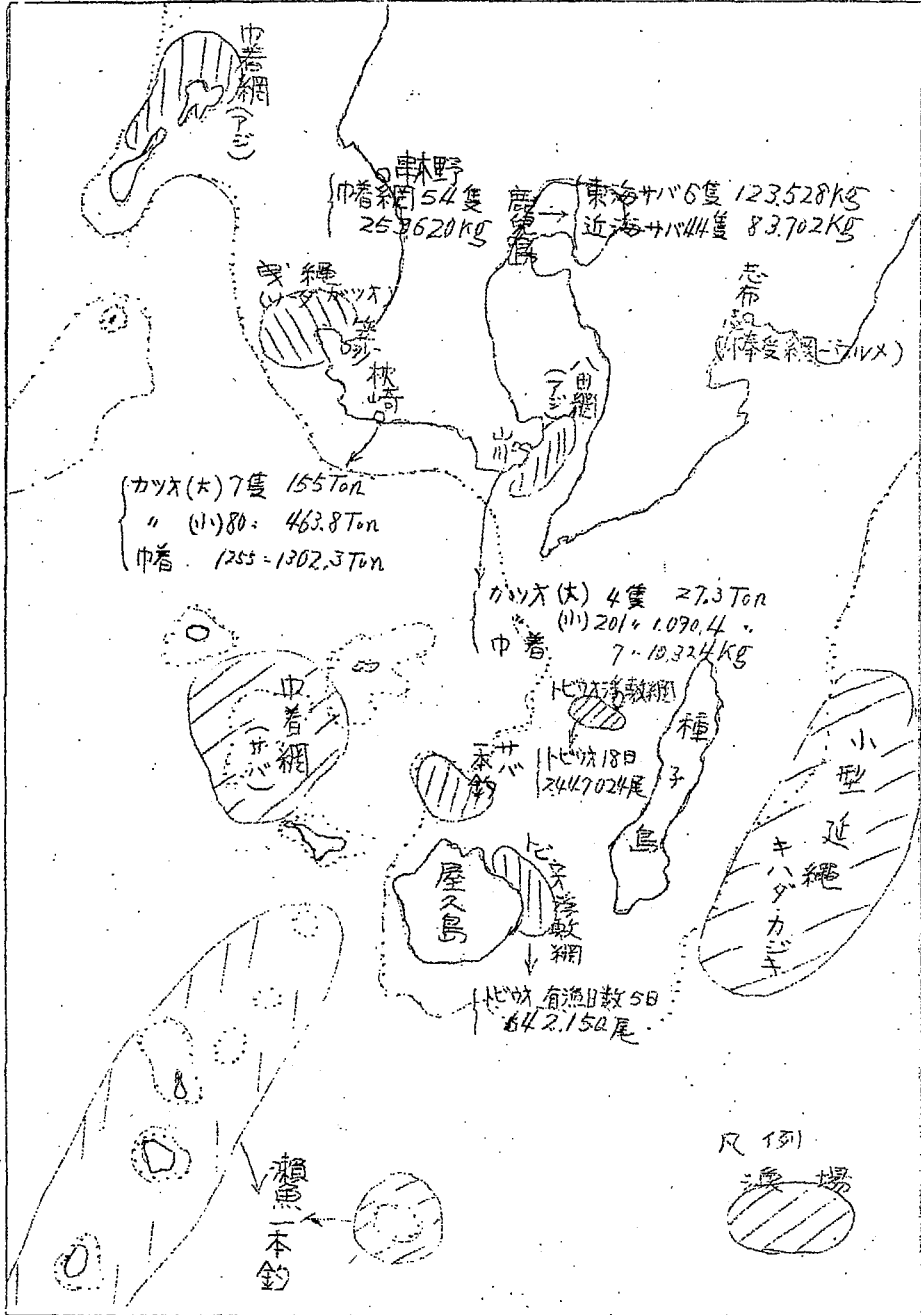 巾着網(アジ)
串木野
巾着網54隻
253620Kg
鹿児島
東海サバ6隻 123.528Kg
近海サバ44隻 83.702Kg
曳縄
(ソーダガツオ)
笠沙
枕崎
八田網
(アジ)
山川
志布志
(棒受網ーウルメ)
カツオ(大) 7隻 155Ton
〃 (小)80〃 463.8Ton
巾着 125〃 1302.3Ton
カツオ(大) 4隻 27.3Ton
(小)201〃 1.090.4〃
巾着 7〃 10.324Kg
トビウオ浮敷網
トビウオ 18日
2.447.024尾
種子島
小型延縄
キハダ・カジキ
巾着網
(サバ)
サバ
一本釣
屋久島
トビウオ浮敷網
トビウオ 有漁日数5日
642.150尾
瀬魚一本釣
凡例
漁場